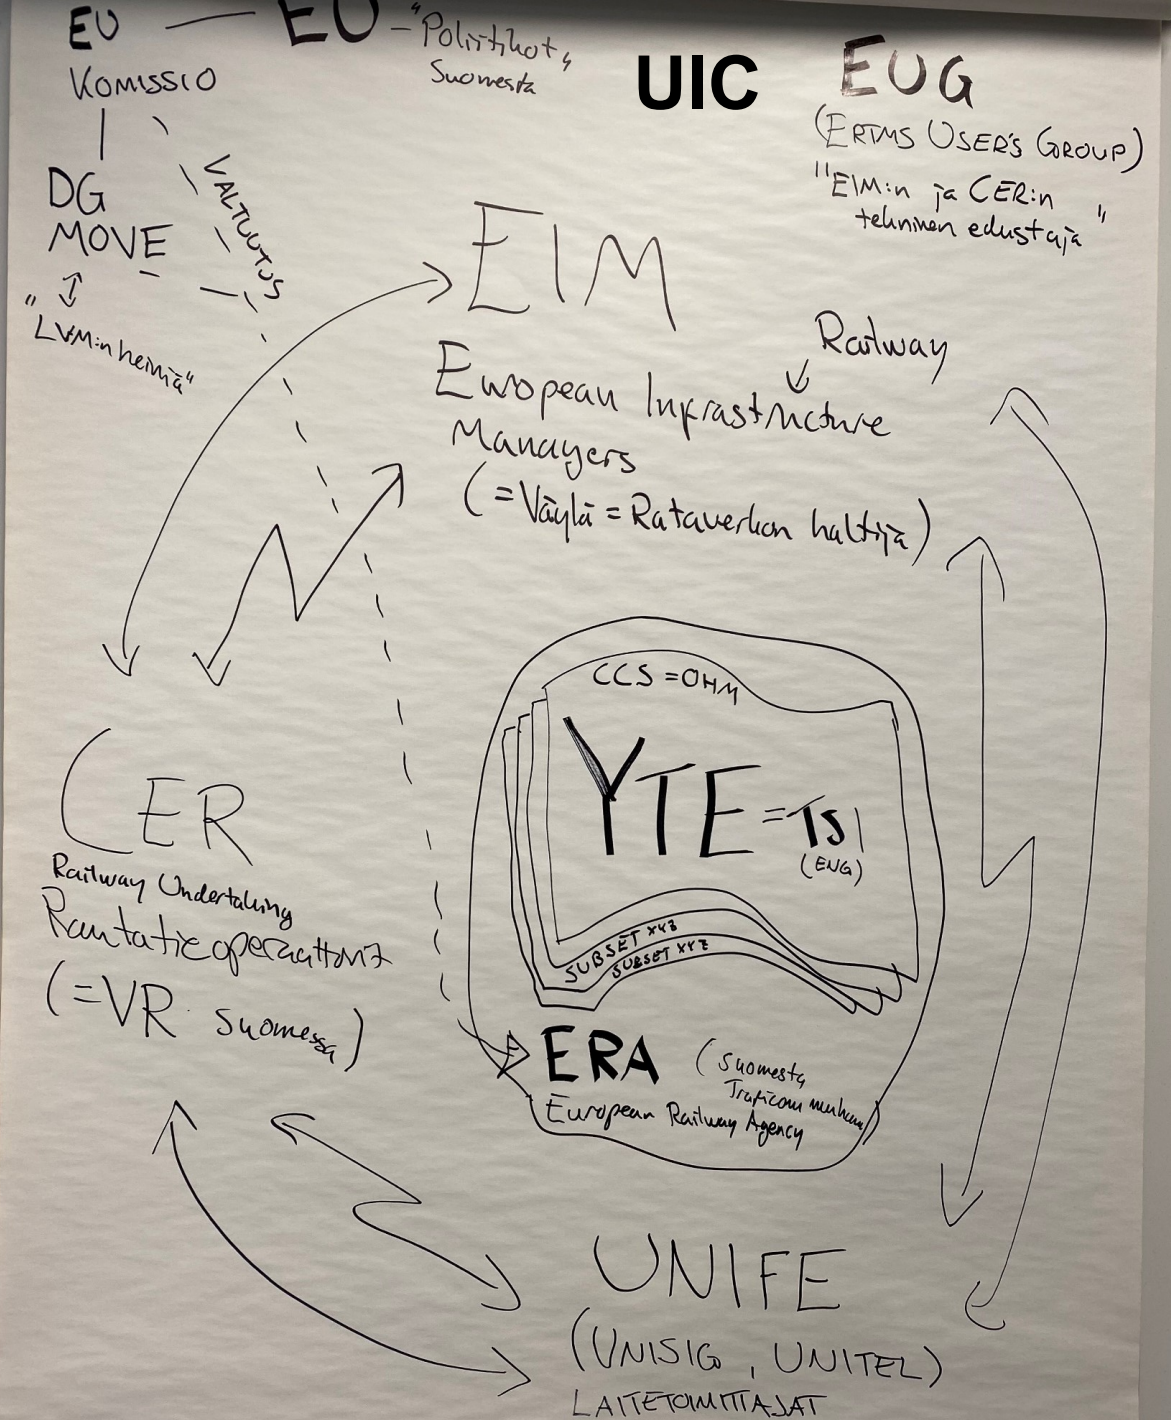 EU — EU - "Poliitikot"
Suomesta
KOMISSIO
DG
MOVE
"LVM:n heimiä"
VALTUUTUS
UIC
EUG
(ERTMS USER'S GROUP)
"EIM:n ja CER:n
tekninen edustaja"
EIM
Railway
European Infrastructure
Managers
(=Väylä = Rataverkon haltija)
CCS = OHM
YTE = TSI
(ENG)
SUBSET XYZ
SUBSET XYZ
ERA
(Suomesta
Traficom mukana)
European Railway Agency
CER
Railway Undertaking
Rautatieoperaattorit
(=VR Suomessa)
UNIFE
(UNISIG, UNITEL)
LAITETOIMITTAJAT